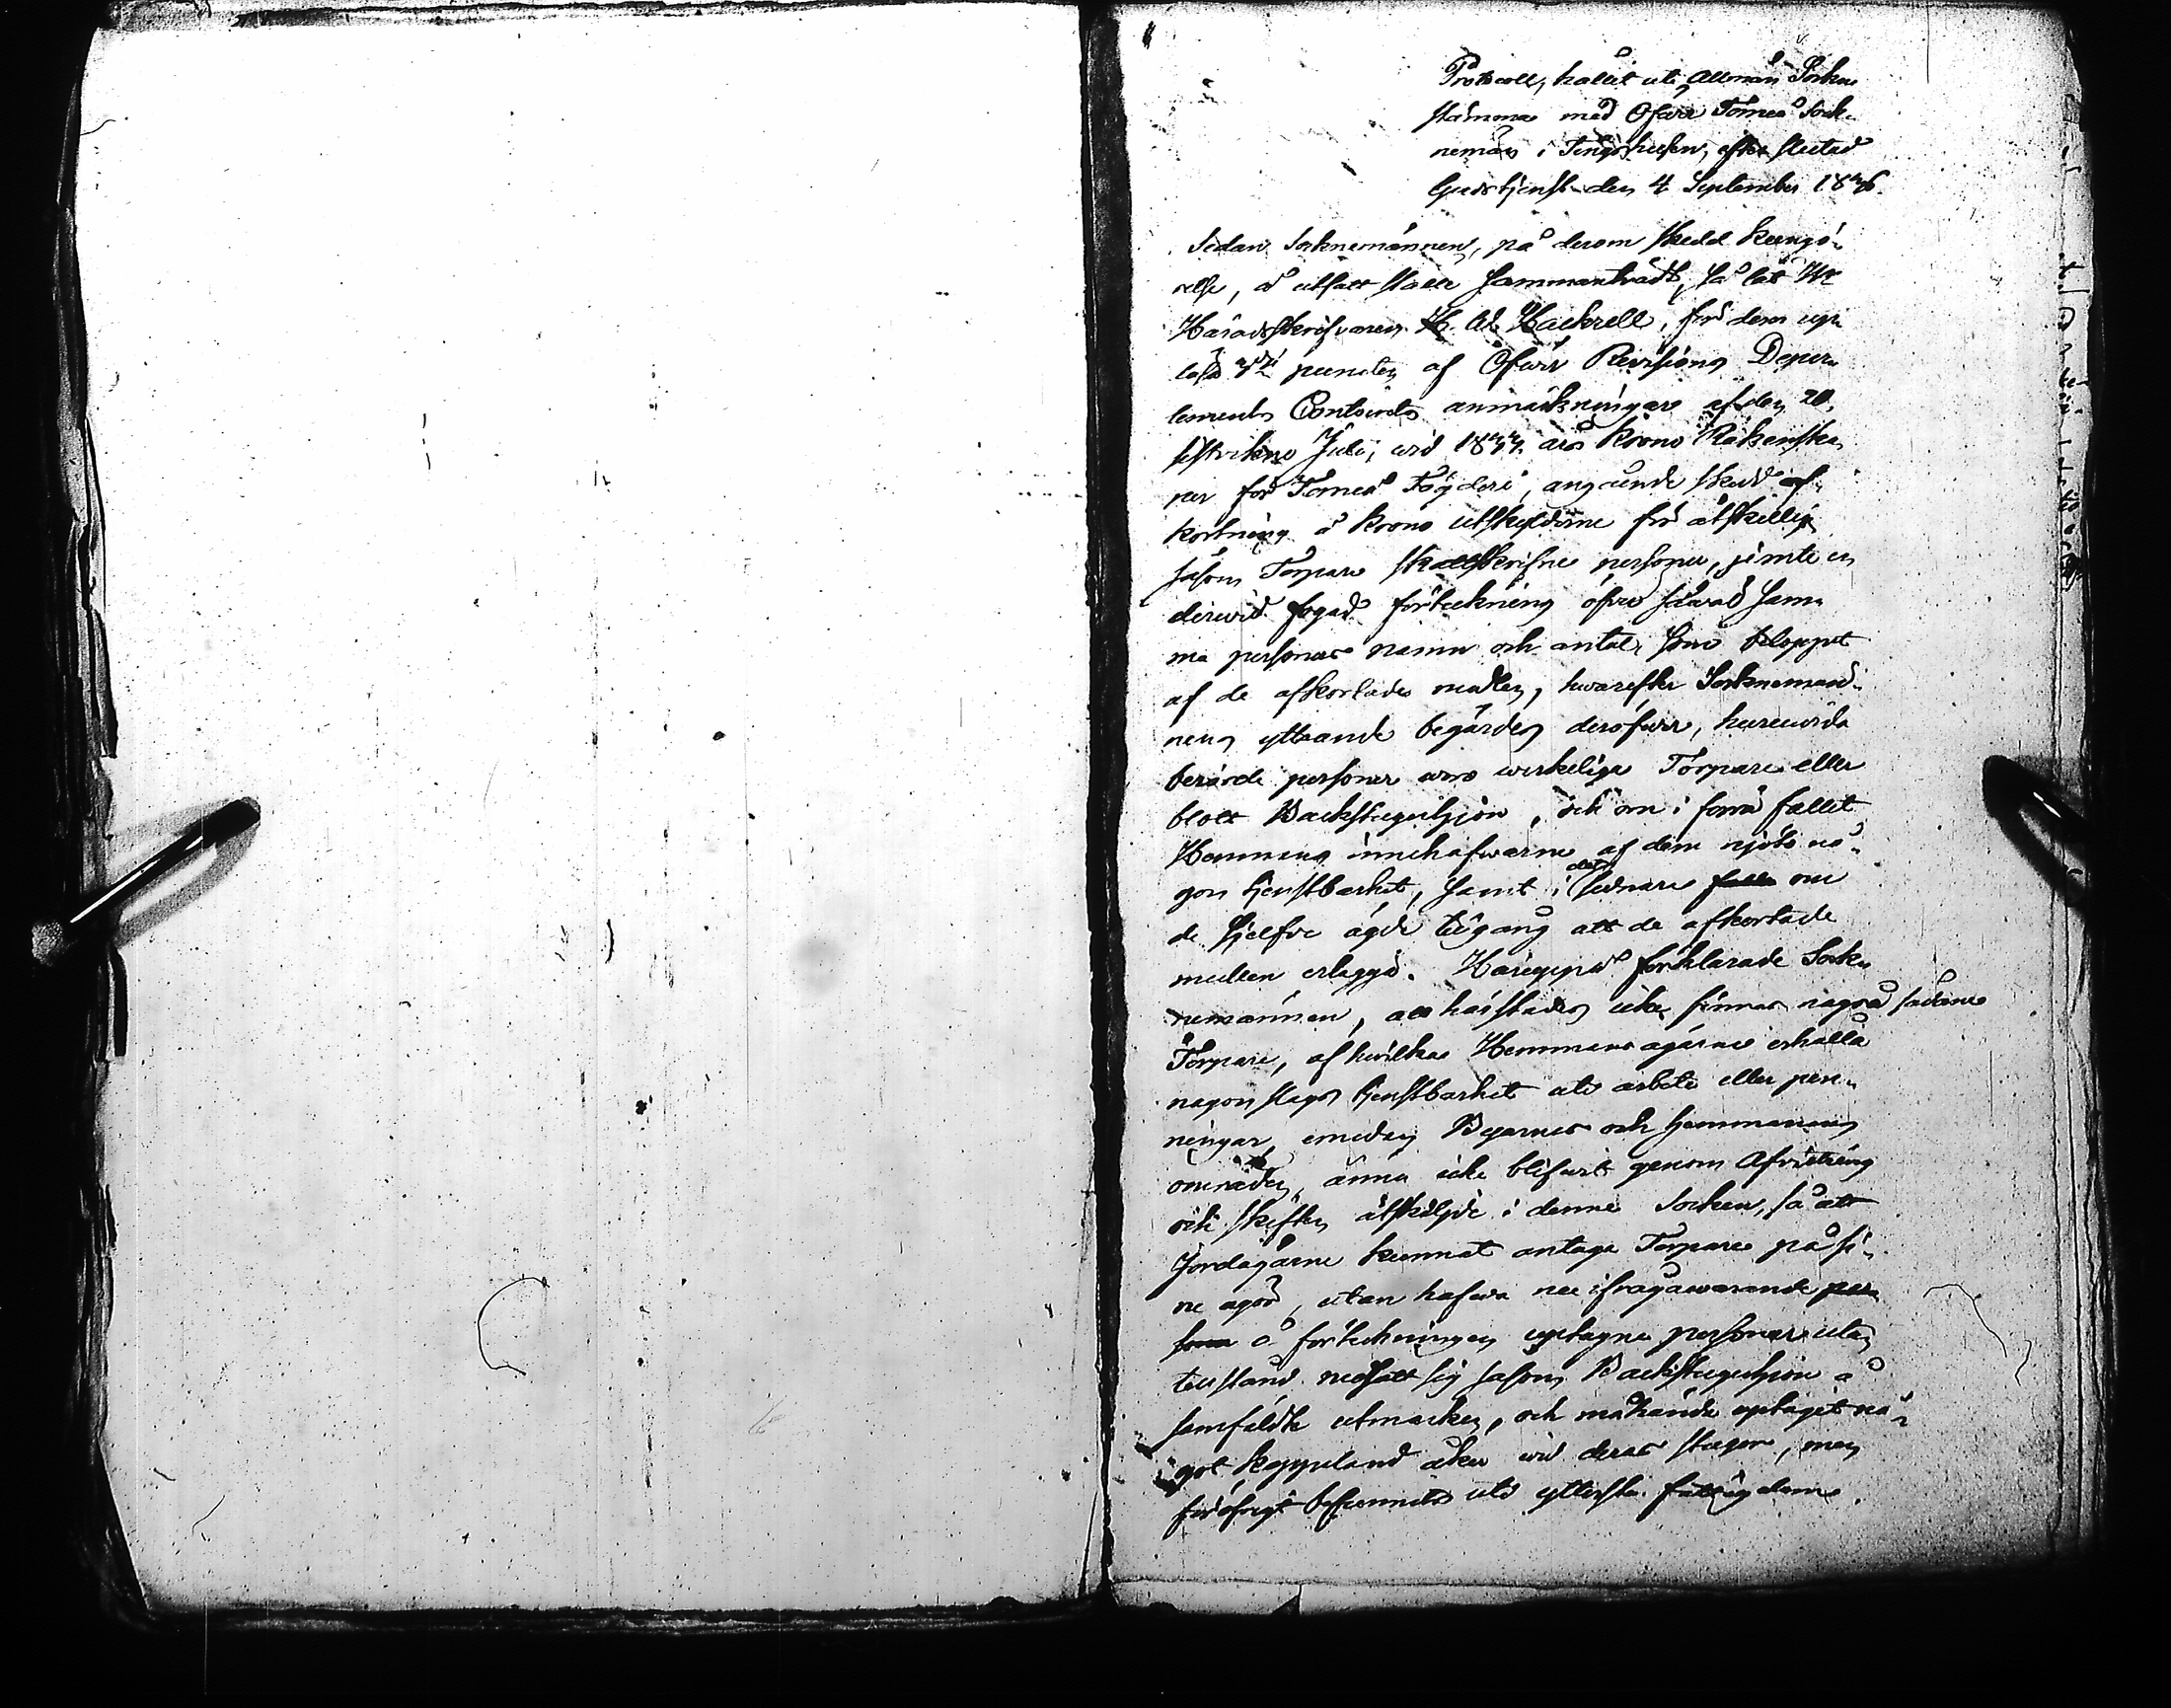 Protocoll, hållit uti Allmän Sockne
stämma med Öfver Torneå Sock-
nemän i Tingshusen, efter slutad
Gudstjenst den 4 September 1836.
Sedan Socknemännen, på derom skedd kungö-
relse, å utsatt ställe sammanträdt, så lät Hr
Häradskrifvaren H. Ad. Hackzell, för dem upp
läsa punkten af Öfver Revisions Depar-
tements Contoirets anmärkningar af den 20,
sistvikne Juli, wid 1833 års Krono Räkenska-
per för Torneå Fögderi, angående skedd af-
kortning å Krono utskylderne för åtskillige
såsom Torpare skattskrifne personer, jemte en
dervid fogad förteckning öfver såwäl sam-
ma personers namn och antal som beloppet
af de afkortade medlen, hwarefter Socknemän-
nens yttrande begärdes deröfver, huruwida
berörde personer woro werkelige Torpare eller
blott Backstuguhjon, och om i förra fallet
Hemmans innehafwarne af dem njöto nå-
gon tjenstbarhet, samt i det sednare om
de sjelfve ägde tillgång att de afkortade
medlen erlägga. Häruppå förklarade Sock-
nemännen, att härstädes icke finnas några sådane
Torpare, af hwilka Hemmans ägarne erhålla
någon slags tjenstbarhet uti arbete eller pen-
ningar, emedan Byarnes och hemmanens
områden ännu icke blifwit genom Afvittring
och skiften åtskiljde i denne Socken, så att
Jordägarne kunnat antaga Torpare på si-
ne ägor, utan hafwa nu ifrågawarande
å förteckningen uptagne personer utan
tillstånd nedsatt sig såsom Backstuguhjon å
samfäldte utmarken, och måhända uptagit nå-
got kappeland åker wid deras stugor, men
för öfrigt befunnits uti yttersta fattigdom